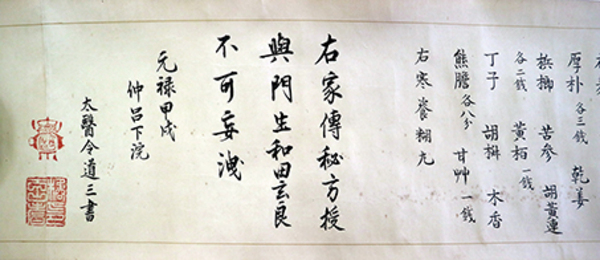 厚朴 各三錢 乾姜
梹榔 苦参 胡黃連
各二錢 黃栢 一錢
丁子 胡椒 木香
熊膽 各八分 甘艸 一錢
右寒 糊丸
右家傳秘方授
與門生和田玄良
不可妄洩
元禄甲戌
仲呂下浣
太醫令道三書